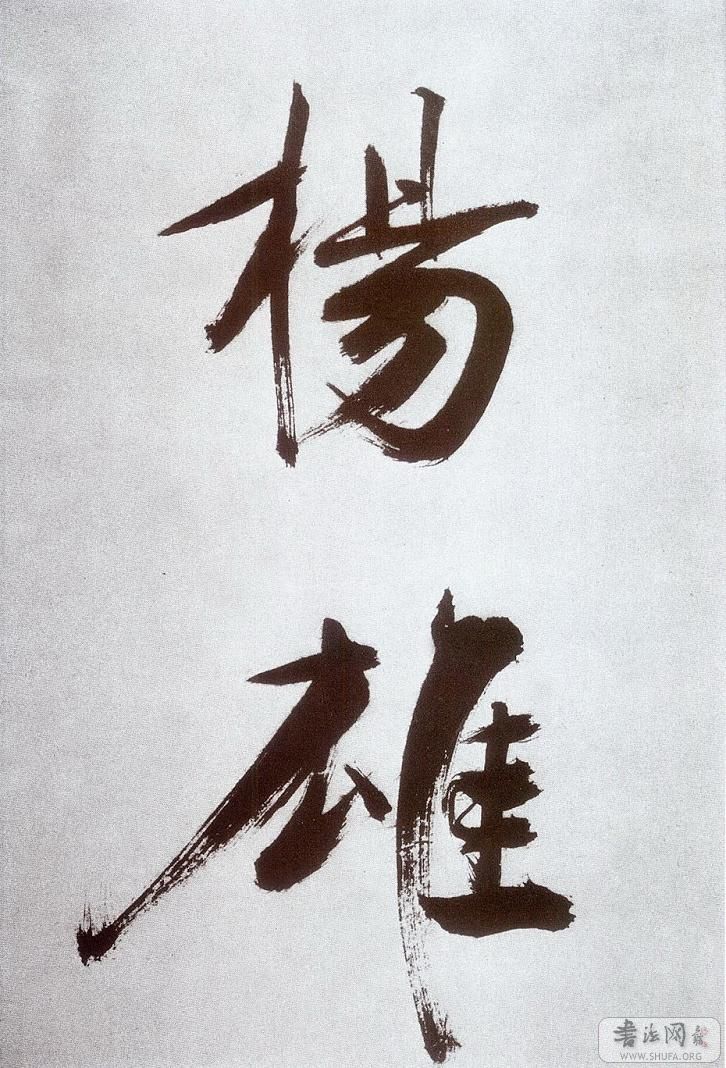 楊
雄
书法网
WWW.SHUFA.ORG